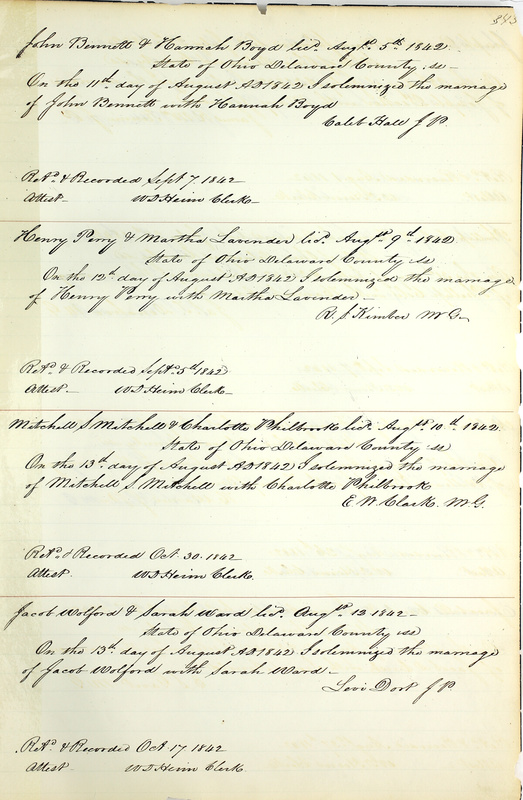 343
John Bennett & Hannah Boyd lic. Augst. 5th 1842.
State of Ohio Delaware County ss
On the 11th day of August AD 1842 I solemnized the marriage
of John Bennett with Hannah Boyd
Caleb Hall J P.
Retd. & Recorded Sept 7. 1842
Attest. W D Heim Clerk
Henry Perry & Martha Lavender lic. Augst. 9th 1842
State of Ohio Delaware County ss
On the 12th day of August AD 1842 I solemnized the marriage
of Henry Perry with Martha Lavender
R. S. Kimber M G.
Retd. & Recorded Sept. 5th 1842
Attest W D Heim Clerk
Mitchell S Mitchell & Charlotte Philbrook lic. Augst 10th 1842.
State of Ohio Delaware County ss
On the 13th day of August AD 1842 I solemnized the marriage
of Mitchell S Mitchell with Charlotte Philbrook
E. W. Clark. M. G.
Retd. & Recorded Oct. 30. 1842
Attest W D Heim Clerk.
Jacob Wolford & Sarah Ward lic. Augst. 12 1842
State of Ohio Delaware County ss
On the 13th day of August AD 1842 I solemnized the marriage
of Jacob Wolford with Sarah Ward
Levi Dort J P.
Retd. & Recorded Oct 17. 1842
Attest W D Heim Clerk.